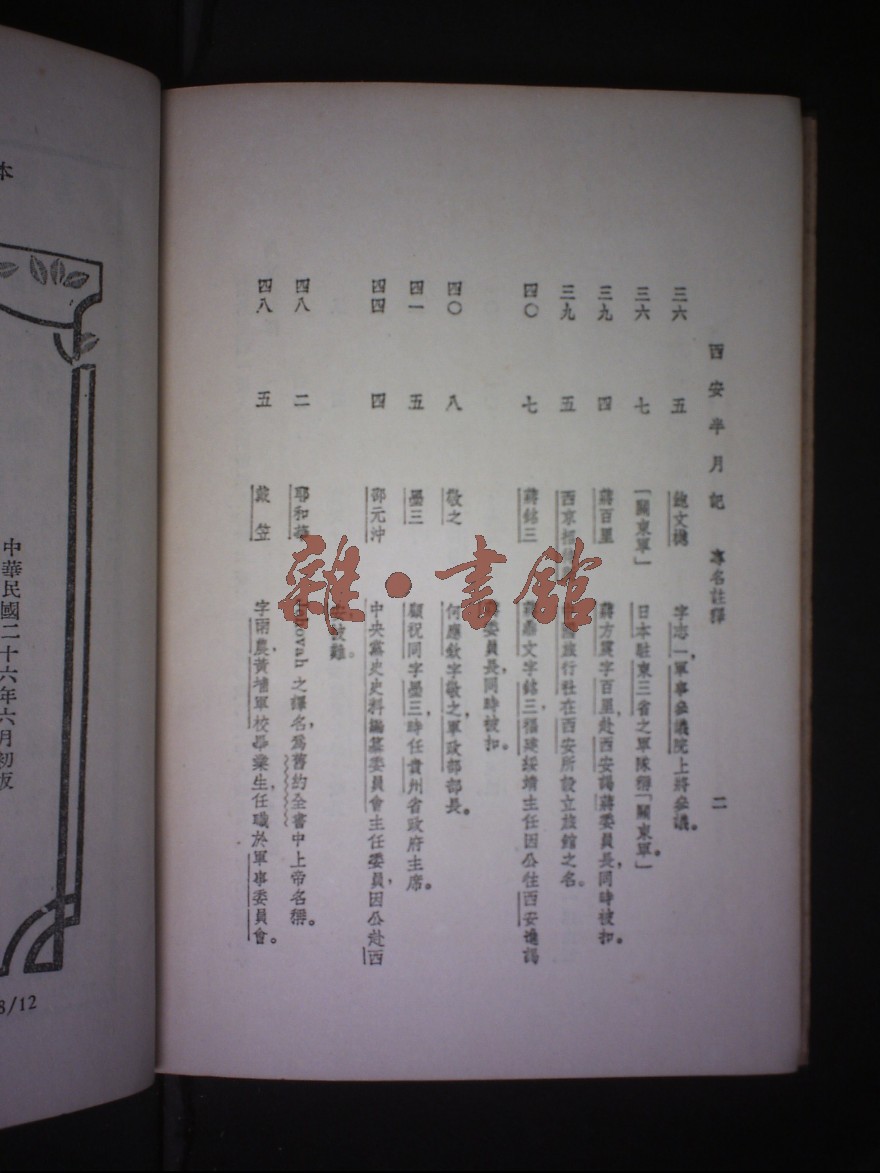 西安半月記 專名註釋 二
三六 五 鮑文樾 字志一,軍事參議院上將參議。
三六 七 「關東軍」 日本駐東三省之軍隊稱「關東軍」。
三九 四 蔣百里 蔣方震字百里,赴西安謁蔣委員長,同時被扣。
三九 五 西京招 旅行社在西安所設立旅館之名。
四〇 七 蔣銘三 蔣鼎文字銘三福建綏靖主任因公往西安進謁
委員長同時被扣。
四〇 八 敬之 何應欽字敬之,軍政部部長。
四一 五 墨三 顧祝同字墨三,時任貴州省政府主席。
四四 四 邵元沖 中央黨史史料編纂委員會主任委員,因公赴西
被難。
四八 二 耶和華 Jehovah 之譯名,爲舊約全書中上帝名稱。
四八 五 戴笠 字雨農,黃埔軍校畢業生,任職於軍事委員會。
雜·書館
本
中華民國二十六年六月初版
8/12